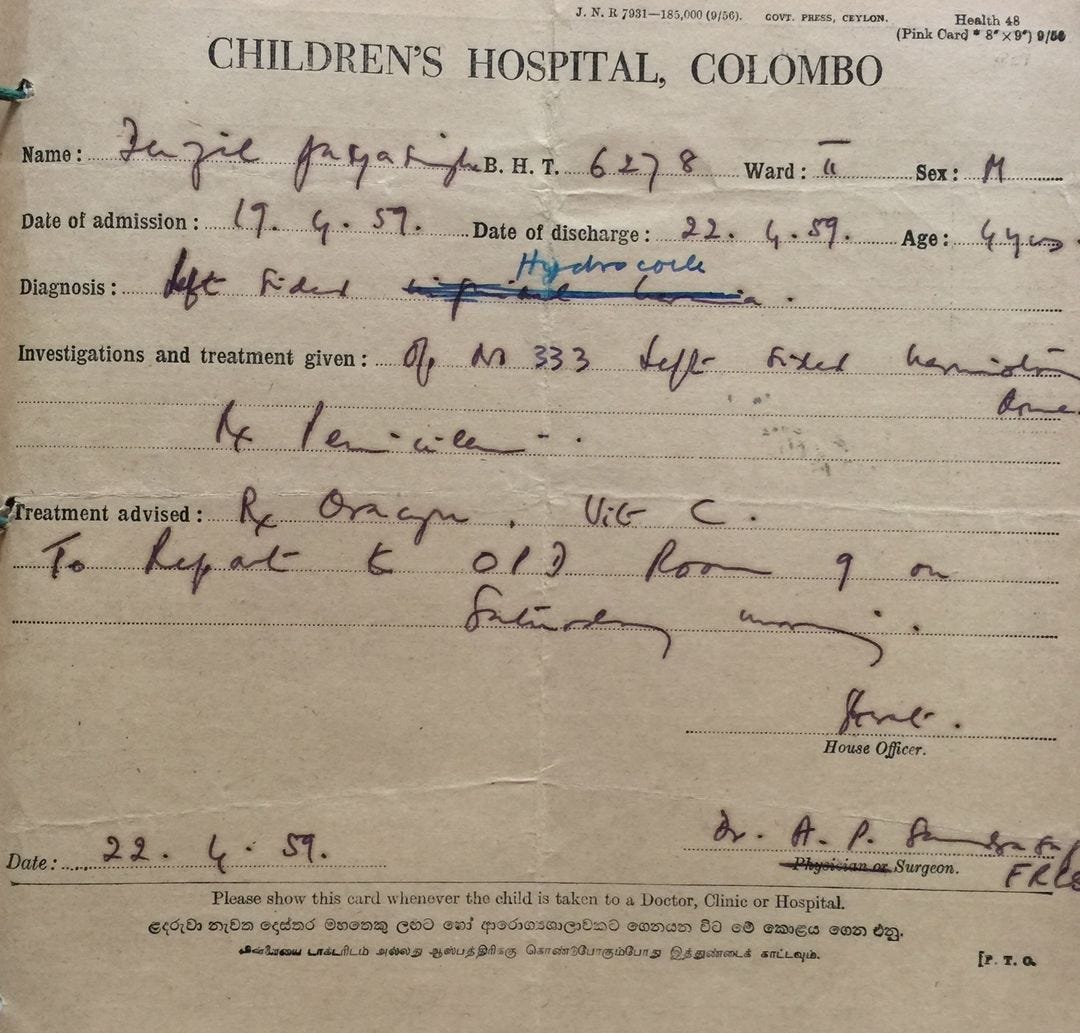 J. N. R 7931—185,000 (9/56). GOVT. PRESS, CEYLON.
Health 48
(Pink Card * 8" × 9") 9/56
CHILDREN'S HOSPITAL, COLOMBO
Name: Denzil Jayasinghe B. H. T. 6278 Ward: II Sex: M
Date of admission: 19. 4. 59. Date of discharge: 22. 4. 59. Age: 4 yrs
Hydrocoele
Diagnosis: Left sided inguinal hernia.
Investigations and treatment given: Op No 333 Left sided
done
Rx Penicillin
Treatment advised: Rx Oracyn, Vit C.
To Report to OPD Room 9 on
Saturday morning.
House Officer.
Dr. A. P.
Date: 22. 4. 59.
Physician or Surgeon. FRCS
Please show this card whenever the child is taken to a Doctor, Clinic or Hospital.
ළදරුවා නැවත දොස්තර මහතෙකු ලඟට හෝ ආරොග්‍යශාලාවකට ගෙනයන විට මේ කොළය ගෙන එනු.
டாக்டரிடம் அல்லது ஆஸ்பத்திரிக்கு கொண்டுபோகும்போது இத்துண்டைக் காட்டவும்.
[P. T. O.